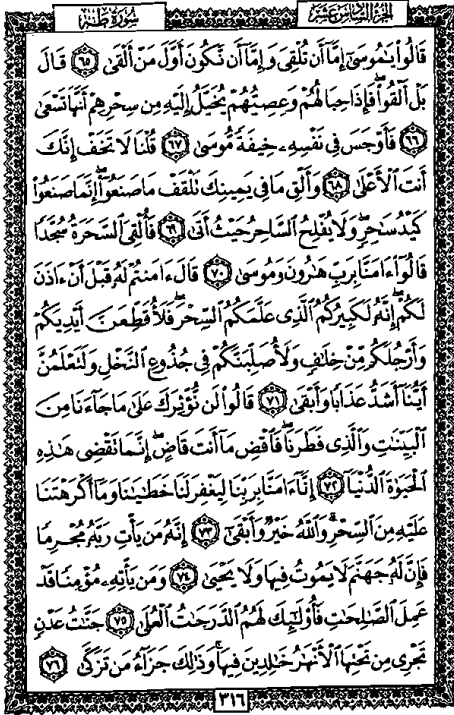 سُورَةُ طه الجزء السادس عشر
قَالُواْ يَـٰمُوسَىٰٓ إِمَّآ أَن تُلْقِىَ وَإِمَّآ أَن نَّكُونَ أَوَّلَ مَنْ أَلْقَىٰ ٦٥ قَالَ
بَلْ أَلْقُواْ ۖ فَإِذَا حِبَالُهُمْ وَعِصِيُّهُمْ يُخَيَّلُ إِلَيْهِ مِن سِحْرِهِمْ أَنَّهَا تَسْعَىٰ
٦٦ فَأَوْجَسَ فِى نَفْسِهِۦ خِيفَةً مُّوسَىٰ ٦٧ قُلْنَا لَا تَخَفْ إِنَّكَ
أَنتَ ٱلْأَعْلَىٰ ٦٨ وَأَلْقِ مَا فِى يَمِينِكَ تَلْقَفْ مَا صَنَعُوٓاْ ۖ إِنَّمَا صَنَعُواْ
كَيْدُ سَـٰحِرٍ ۖ وَلَا يُفْلِحُ ٱلسَّاحِرُ حَيْثُ أَتَىٰ ٦٩ فَأُلْقِىَ ٱلسَّحَرَةُ سُجَّدًا
قَالُوٓاْ ءَامَنَّا بِرَبِّ هَـٰرُونَ وَمُوسَىٰ ٧٠ قَالَ ءَامَنتُمْ لَهُۥ قَبْلَ أَنْ ءَاذَنَ
لَكُمْ ۖ إِنَّهُۥ لَكَبِيرُكُمُ ٱلَّذِى عَلَّمَكُمُ ٱلسِّحْرَ ۖ فَلَأُقَطِّعَنَّ أَيْدِيَكُمْ
وَأَرْجُلَكُم مِّنْ خِلَـٰفٍ وَلَأُصَلِّبَنَّكُمْ فِى جُذُوعِ ٱلنَّخْلِ وَلَتَعْلَمُنَّ
أَيُّنَآ أَشَدُّ عَذَابًا وَأَبْقَىٰ ٧١ قَالُواْ لَن نُّؤْثِرَكَ عَلَىٰ مَا جَآءَنَا مِنَ
ٱلْبَيِّنَـٰتِ وَٱلَّذِى فَطَرَنَا ۖ فَٱقْضِ مَآ أَنتَ قَاضٍ ۖ إِنَّمَا تَقْضِى هَـٰذِهِ
ٱلْحَيَوٰةَ ٱلدُّنْيَآ ٧٢ إِنَّآ ءَامَنَّا بِرَبِّنَا لِيَغْفِرَ لَنَا خَطَـٰيَـٰنَا وَمَآ أَكْرَهْتَنَا
عَلَيْهِ مِنَ ٱلسِّحْرِ ۗ وَٱللَّهُ خَيْرٌ وَأَبْقَىٰٓ ٧٣ إِنَّهُۥ مَن يَأْتِ رَبَّهُۥ مُجْرِمًا
فَإِنَّ لَهُۥ جَهَنَّمَ لَا يَمُوتُ فِيهَا وَلَا يَحْيَىٰ ٧٤ وَمَن يَأْتِهِۦ مُؤْمِنًا قَدْ
عَمِلَ ٱلصَّـٰلِحَـٰتِ فَأُوْلَـٰٓئِكَ لَهُمُ ٱلدَّرَجَـٰتُ ٱلْعُلَىٰ ٧٥ جَنَّـٰتُ عَدْنٍ
تَجْرِى مِن تَحْتِهَا ٱلْأَنْهَـٰرُ خَـٰلِدِينَ فِيهَا ۚ وَذَٰلِكَ جَزَآءُ مَن تَزَكَّىٰ ٧٦
٣١٦